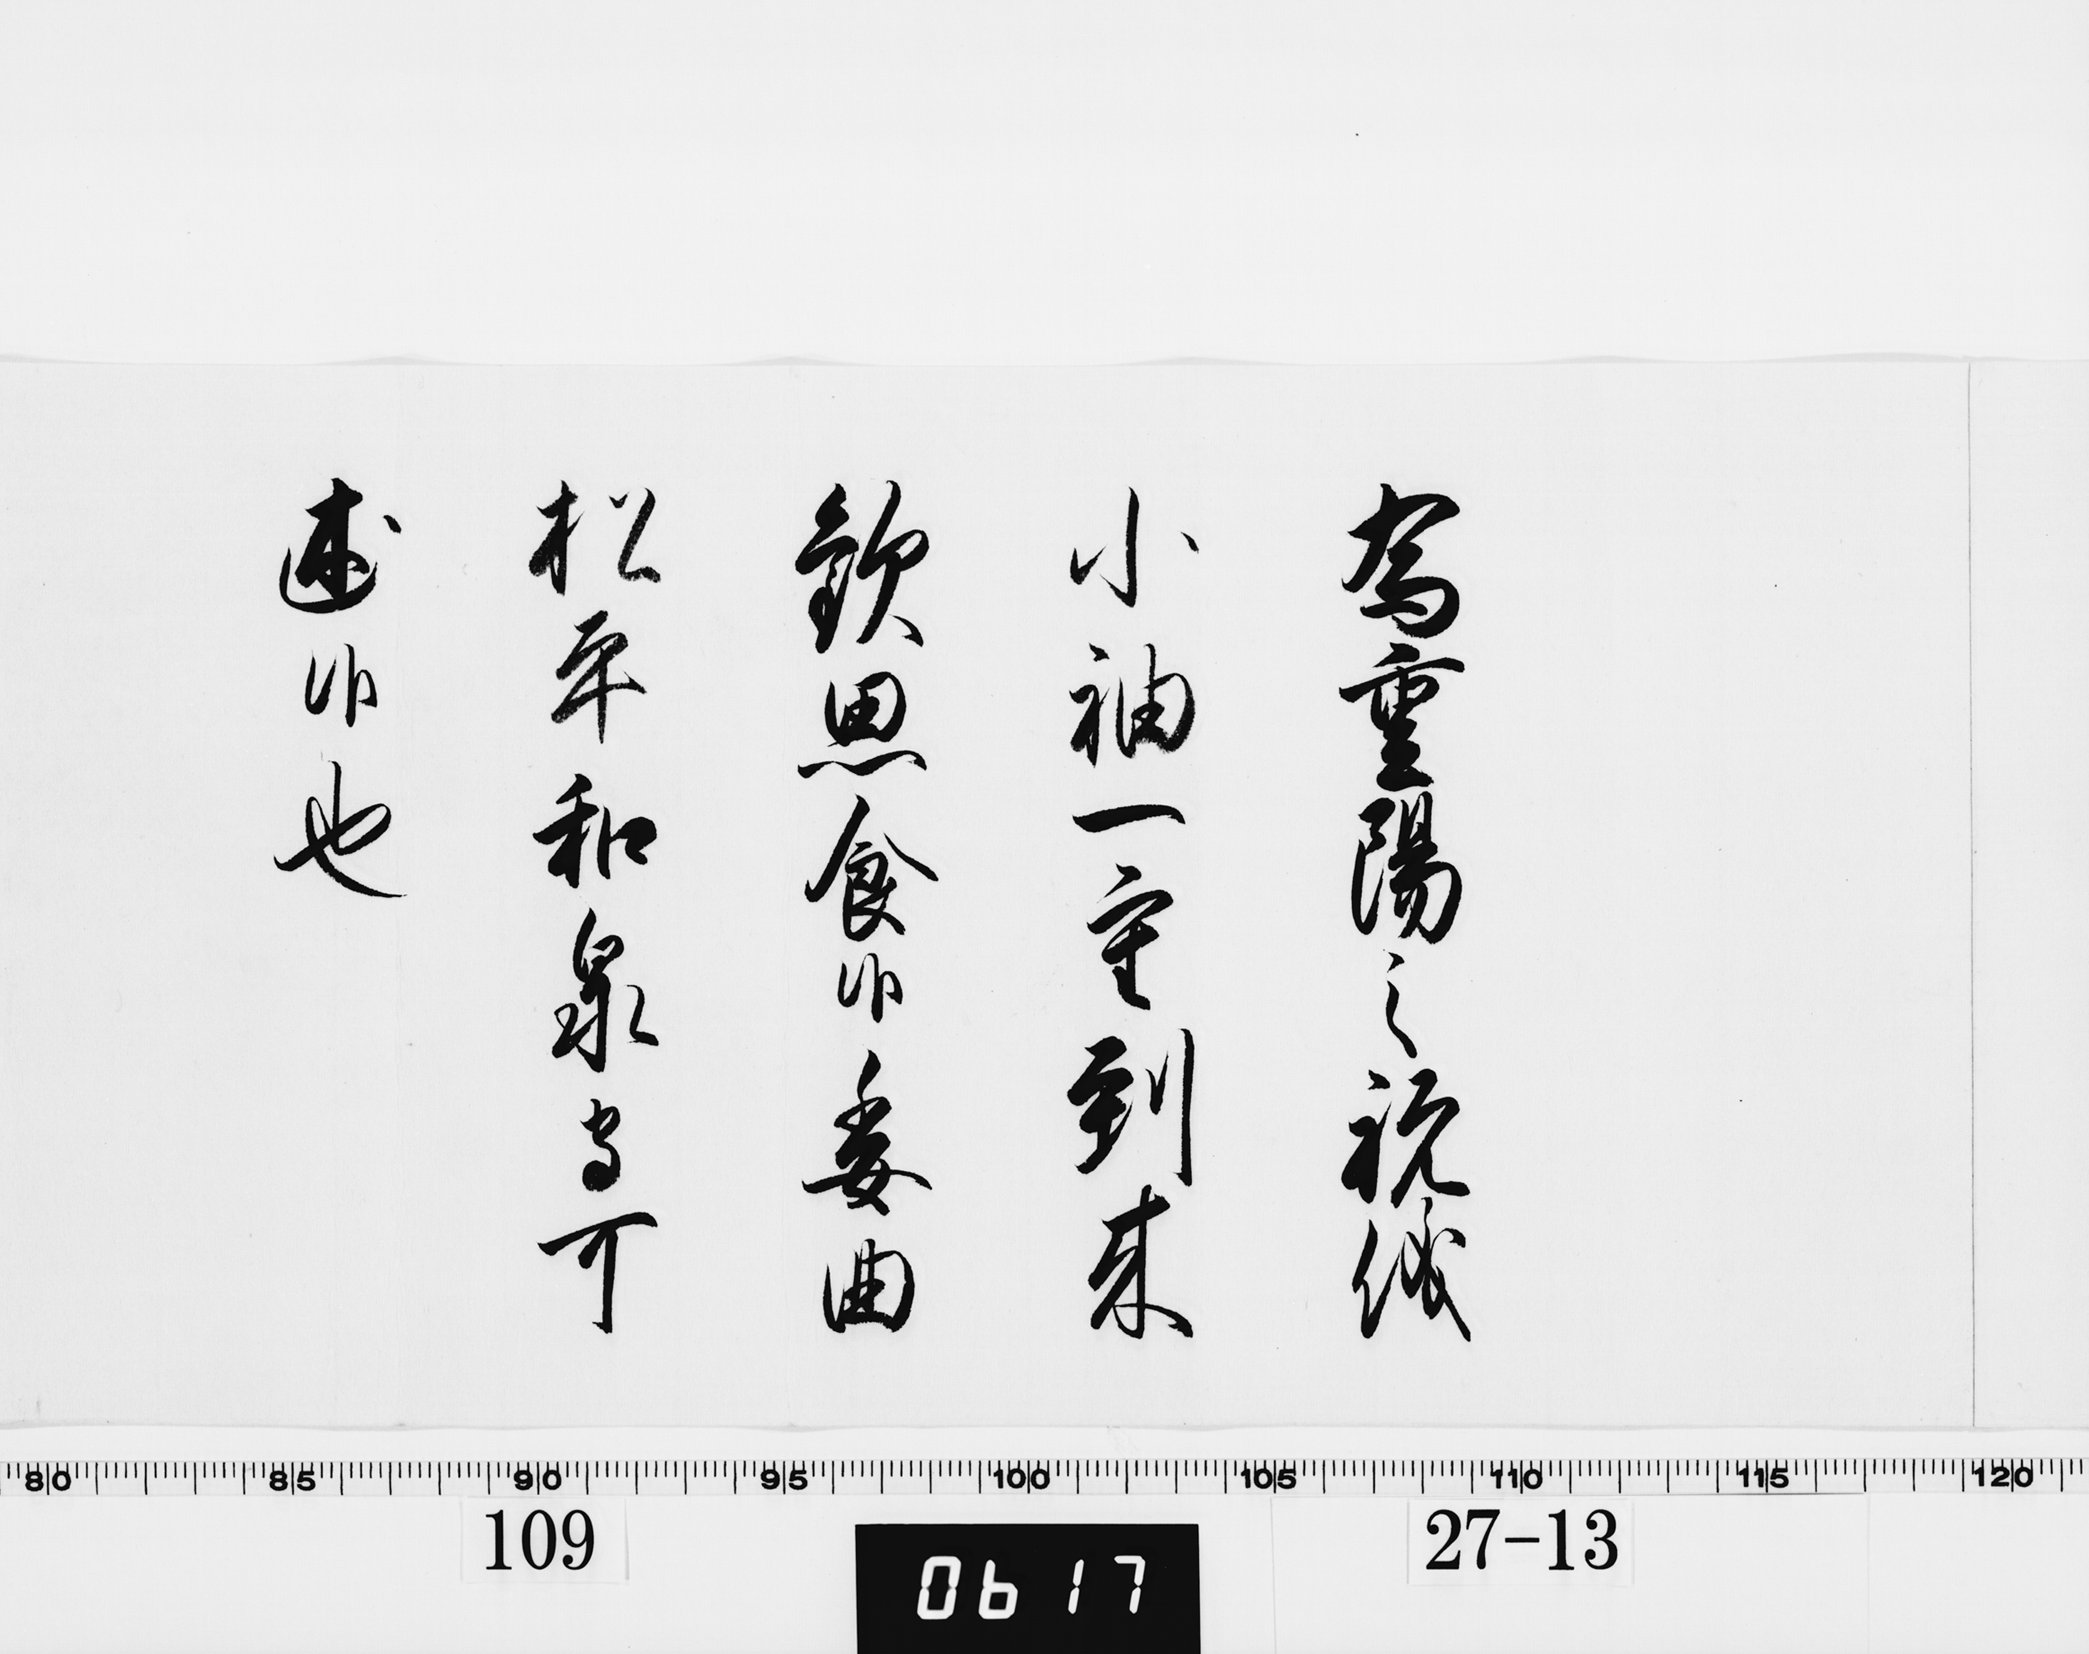 為重陽之祝儀
小袖一重到来
歓思食候委曲
松平和泉守可
述候也
80 85 90 95 100 105 110 115 120
109
0617
27-13